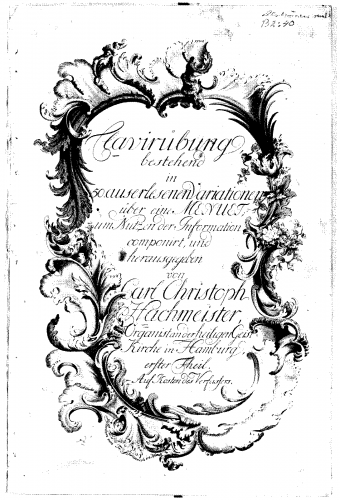 B2:40
Clavirübung
bestehend
in
50 auserlesenen Variationen
über eine MENUET,
zum Nutzen der Information
componirt, und
herausgegeben
von
Carl Christoph
Hachmeister,
Organist an der heiligen Geist
Kirche in Hamburg
erster Theil.
Auf Kosten des Verfassers.